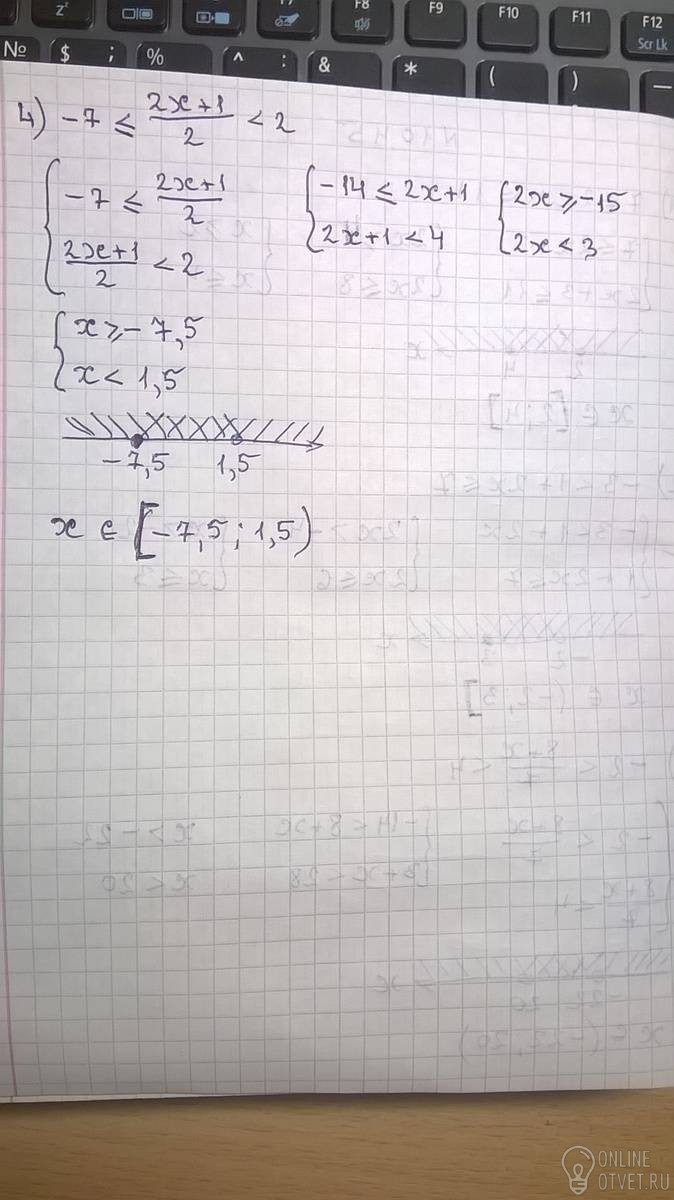 z
F8
F9
F10
F11
F12
Scr Lk
№ $ ; % ^ : & * ( ) —
4) -7 ≤ (2x+1)/2 < 2
{ -7 ≤ (2x+1)/2 { -14 ≤ 2x+1 { 2x ≥ -15
{ (2x+1)/2 < 2 { 2x+1 < 4 { 2x < 3
{ x ≥ -7,5
{ x < 1,5
-7,5 1,5
x ∈ [-7,5; 1,5)
ONLINE
OTVET.RU